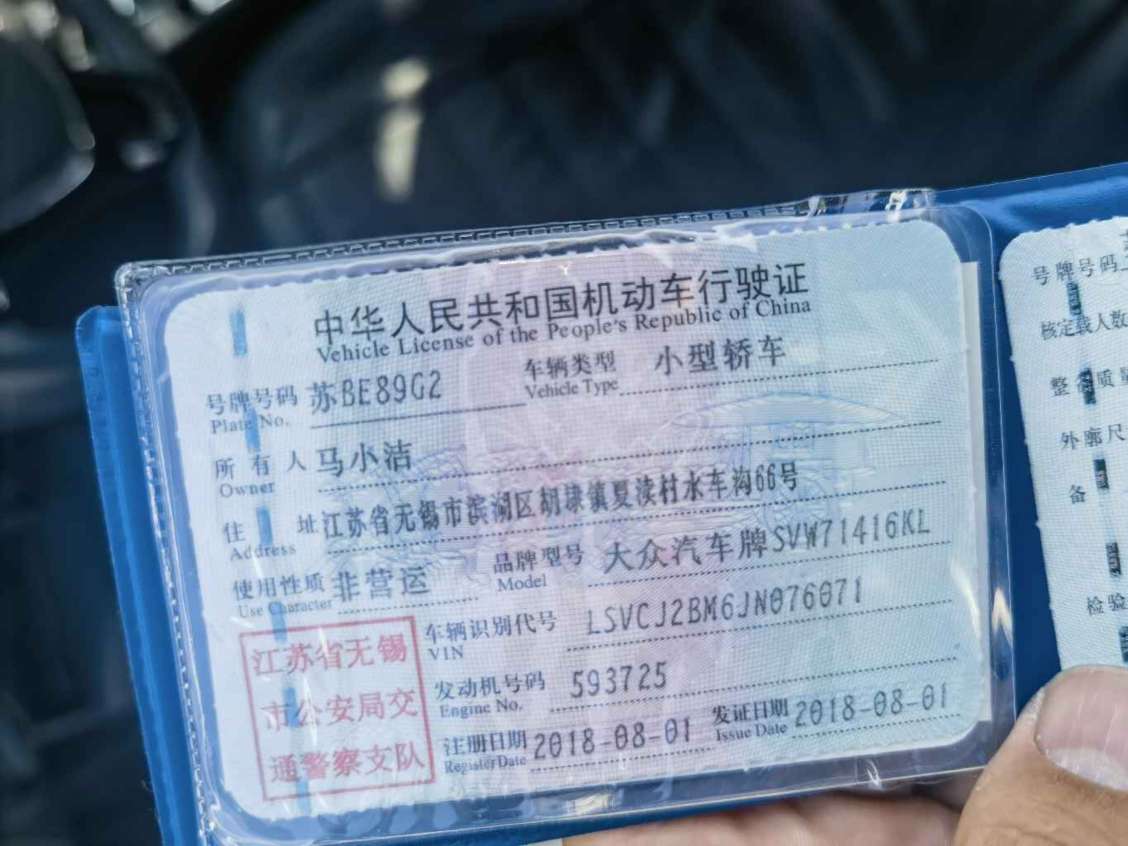 中华人民共和国机动车行驶证
Vehicle License of the People's Republic of China
号牌号码 苏BE89G2 车辆类型 小型轿车
Plate No. Vehicle Type
所有人 马小洁
Owner
住址 江苏省无锡市滨湖区胡埭镇夏渎村水车沟66号
Address
使用性质 非营运 品牌型号 大众汽车牌SVW71416KL
Use Character Model
车辆识别代号 LSVCJ2BM6JN076071
VIN
发动机号码 593725
Engine No.
注册日期 2018-08-01 发证日期 2018-08-01
Register Date Issue Date
江苏省无锡
市公安局交
通警察支队
号牌号码
核定载人数
整备质量
外廓尺
备
检验